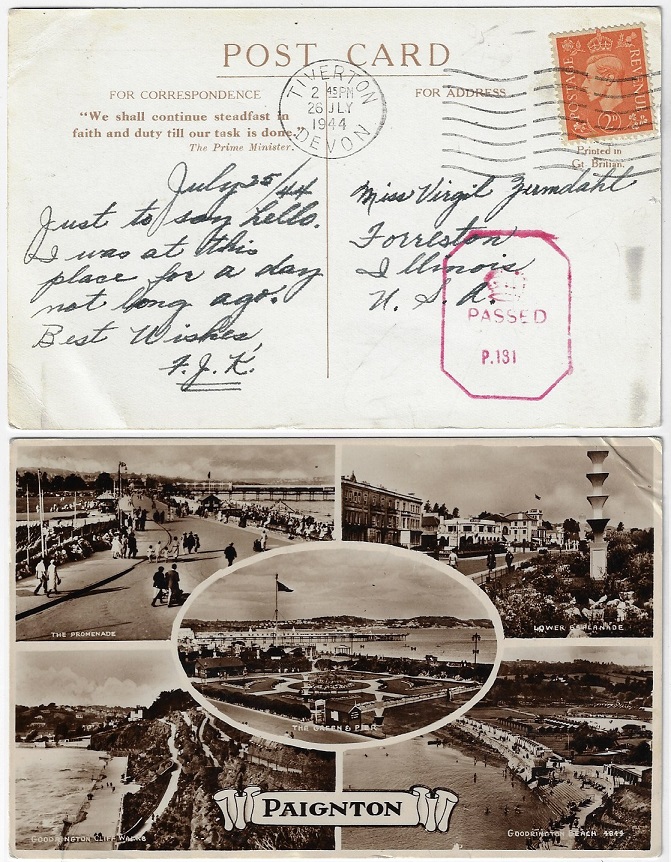 POST CARD
FOR CORRESPONDENCE
FOR ADDRESS
"We shall continue steadfast in
faith and duty till our task is done."
The Prime Minister.
TIVERTON
2 45 PM
26 JLY
1944
DEVON
POSTAGE
REVENUE
2D
Printed in
Gt. Britian.
July 25/44
Just to say hello.
I was at this
place for a day
not long ago.
Best Wishes,
F.J.K.
Miss Virgil Zermdahl
Forreston
Illinois
U.S.A.
PASSED
P.131
THE PROMENADE
LOWER ESPLANADE
THE GREEN & PIER
GOODRINGTON CLIFF WALKS
PAIGNTON
GOODRINGTON BEACH 4844